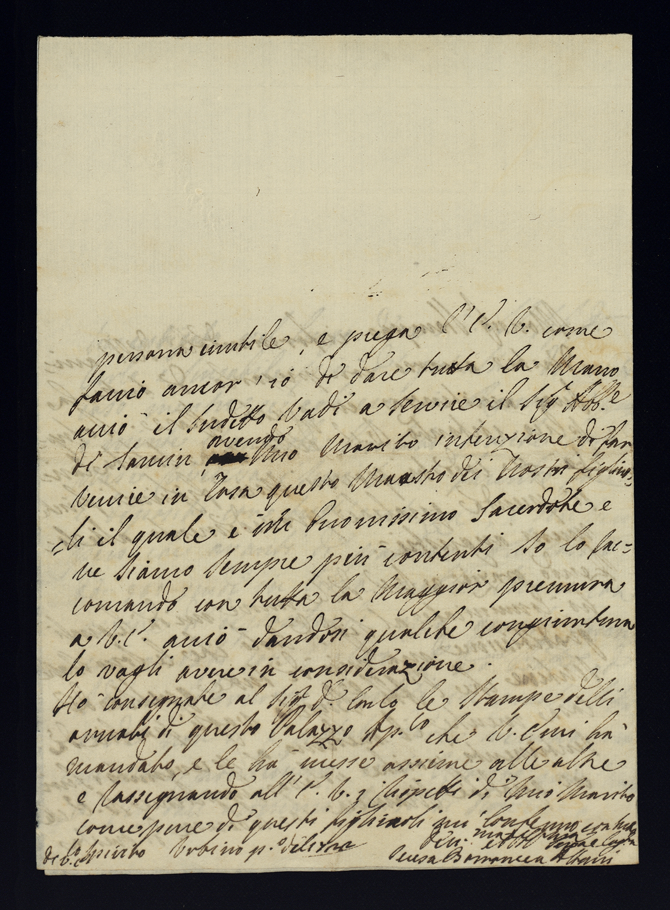 persona civile, e prega l'E. V. come
faccio ancor' io di dare tutta la Mano
acciò il sudetto Vadi a servire il Sig.r Abb.e
di avendo Mio Marito intenzione di far
venire in Casa questo Maestro dei Nostri figliuo=
=li il quale è un buonissimo Sacerdote e
ne siamo sempre più contenti Io lo rac=
comando con tutta la Maggior premura
a V. E. acciò dandosi qualche congiuntura
lo vogli avere in considerazione.
Ho consegnate al Sig.r D. Carlo le Stampe delli
di questo Palazzo Ap.co che V. E. mi ha
mandato, e le ha messe assieme alle altre
e Rassegnando all' E. V. i Rispetti di Mio Marito
come pure di questi figliuoli mi Confermo con tutta
di V.
Urbino p.o Xbre
Teresa